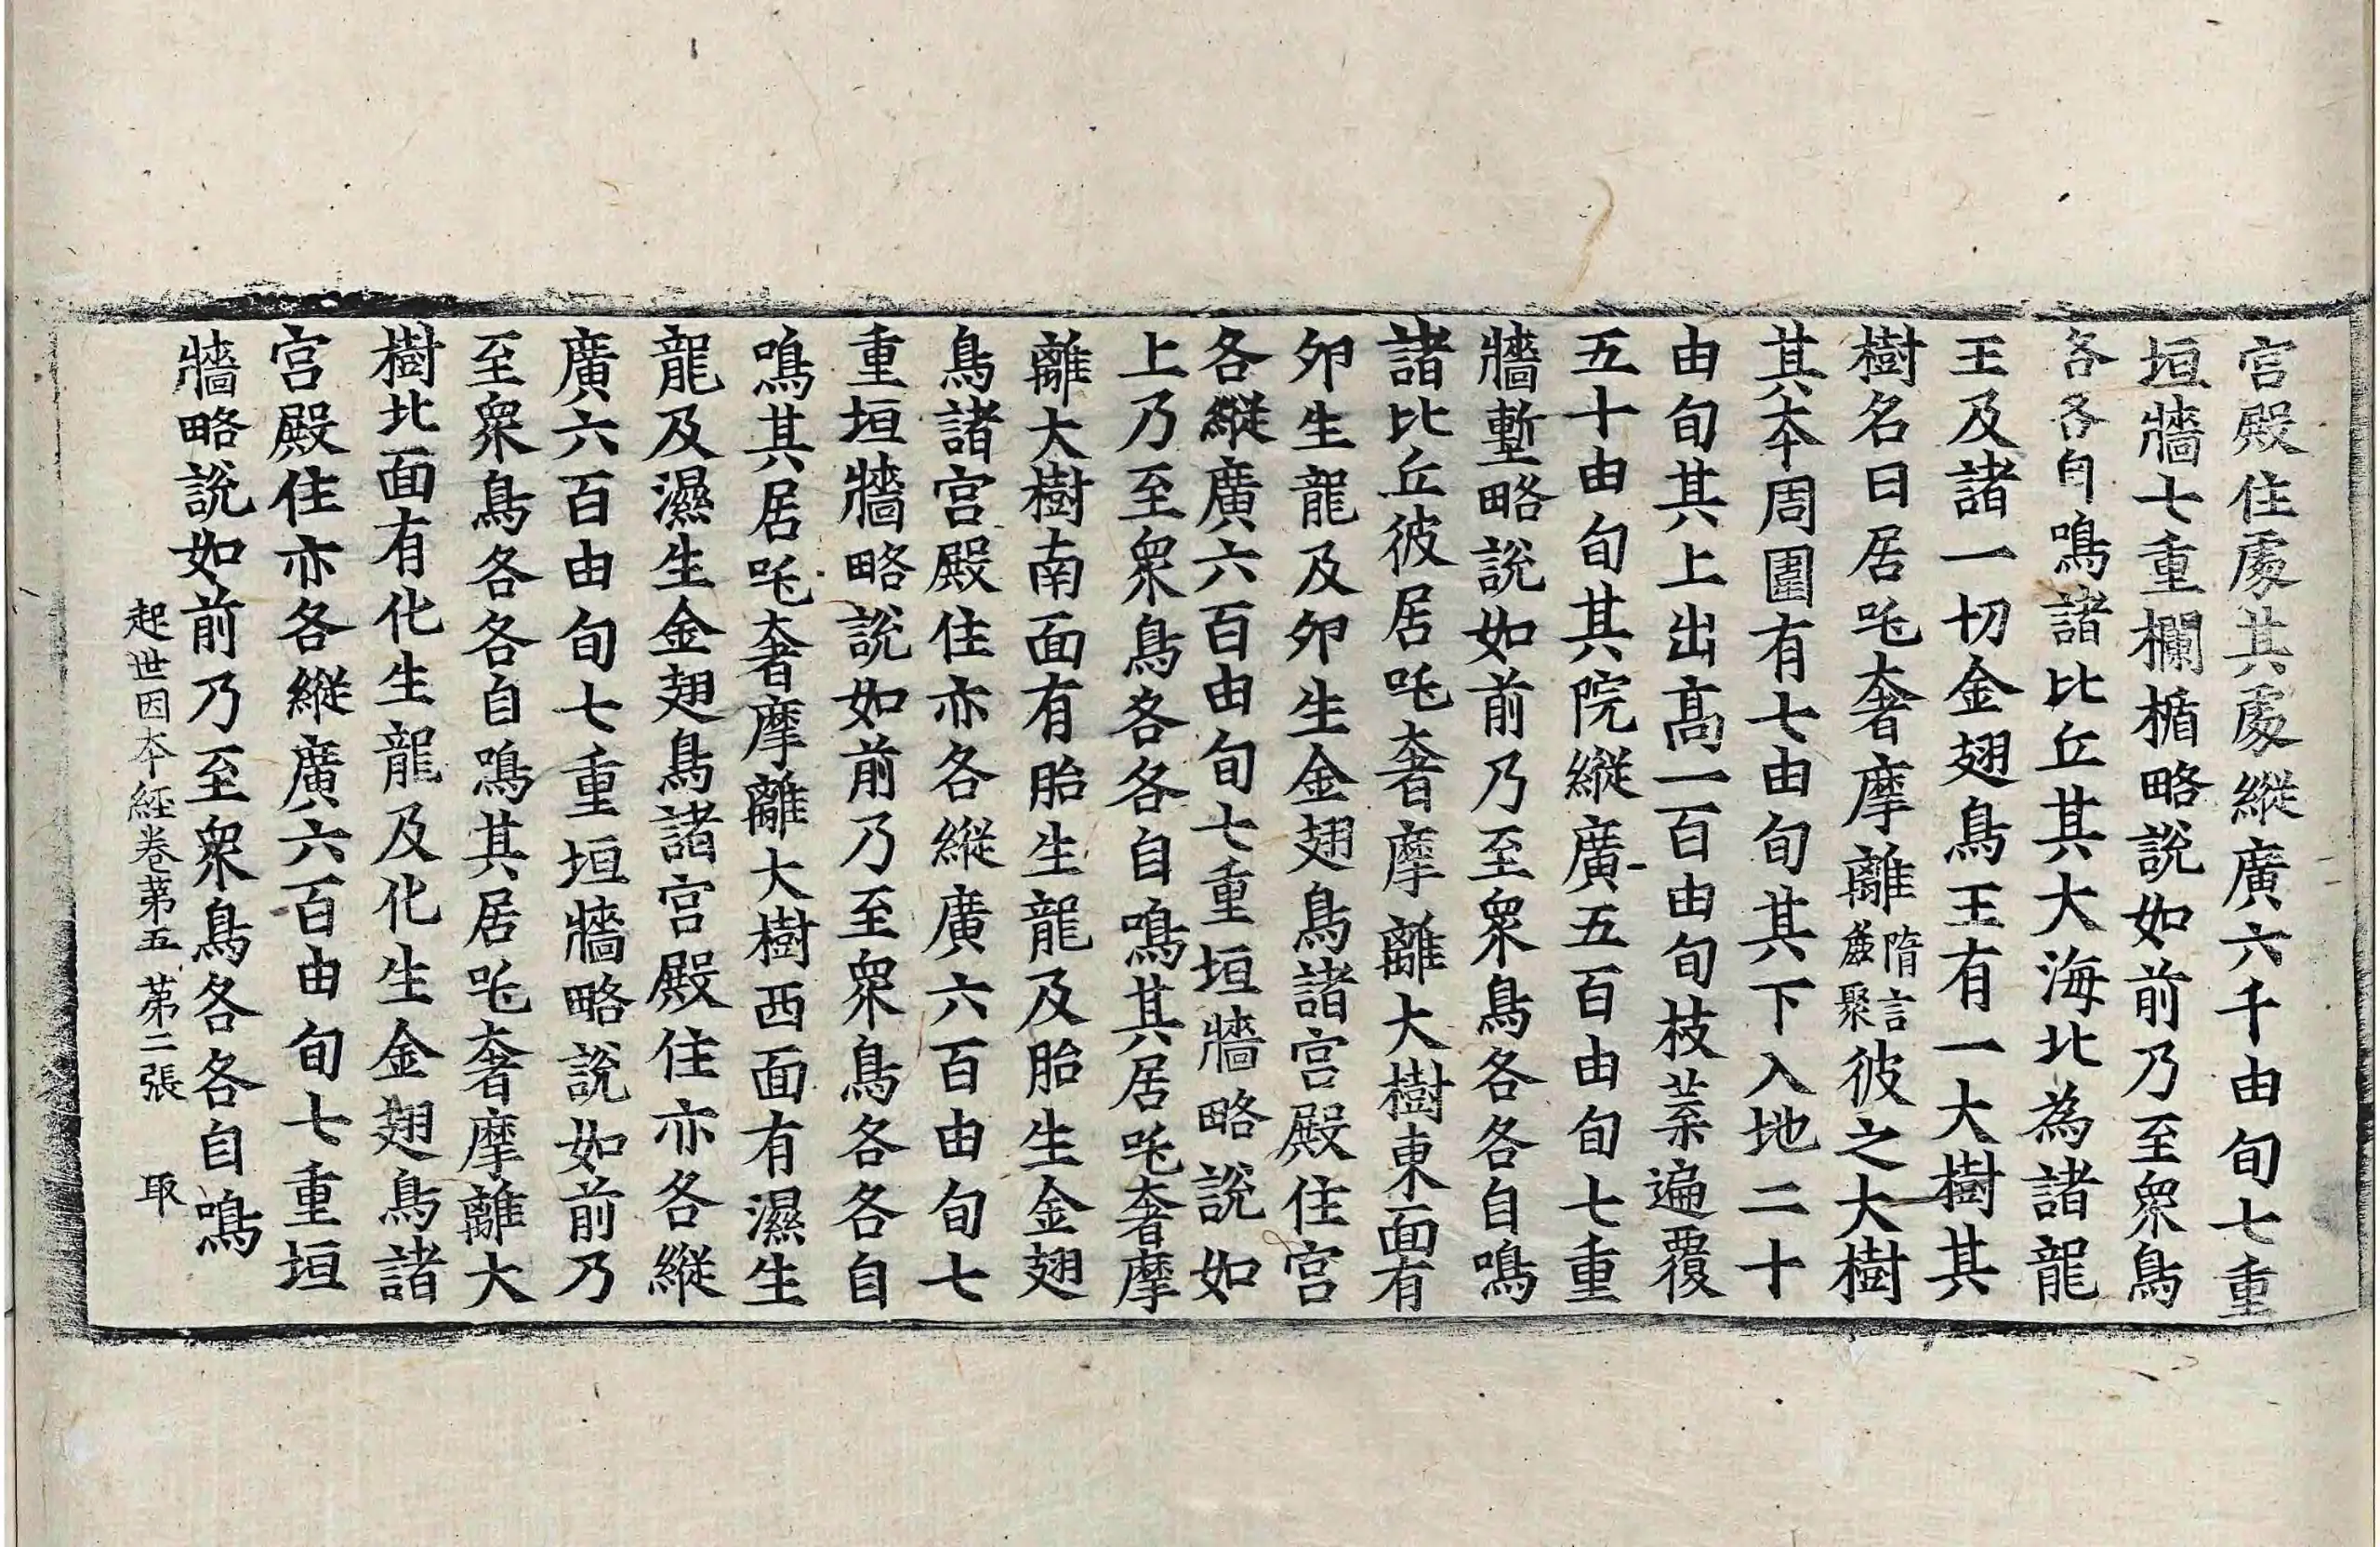 宮殿住處其處縱廣六千由旬七重
垣牆七重欄楯略說如前乃至衆鳥
各各自鳴諸比丘其大海北為諸龍
王及諸一切金翅鳥王有一大樹其
樹名曰居吒奢摩離隋言鹿聚彼之大樹
其本周圍有七由旬其下入地二十
由旬其上出高一百由旬枝葉遍覆
五十由旬其院縱廣五百由旬七重
牆塹略說如前乃至衆鳥各各自鳴
諸比丘彼居吒奢摩離大樹東面有
卵生龍及卵生金翅鳥諸宮殿住宮
各縱廣六百由旬七重垣牆略說如
上乃至衆鳥各各自鳴其居吒奢摩
離大樹南面有胎生龍及胎生金翅
鳥諸宮殿住亦各縱廣六百由旬七
重垣牆略說如前乃至衆鳥各各自
鳴其居吒奢摩離大樹西面有濕生
龍及濕生金翅鳥諸宮殿住亦各縱
廣六百由旬七重垣牆略說如前乃
至衆鳥各各自鳴其居吒奢摩離大
樹北面有化生龍及化生金翅鳥諸
宮殿住亦各縱廣六百由旬七重垣
牆略說如前乃至衆鳥各各自鳴
起世因本經卷第五 第二張 取